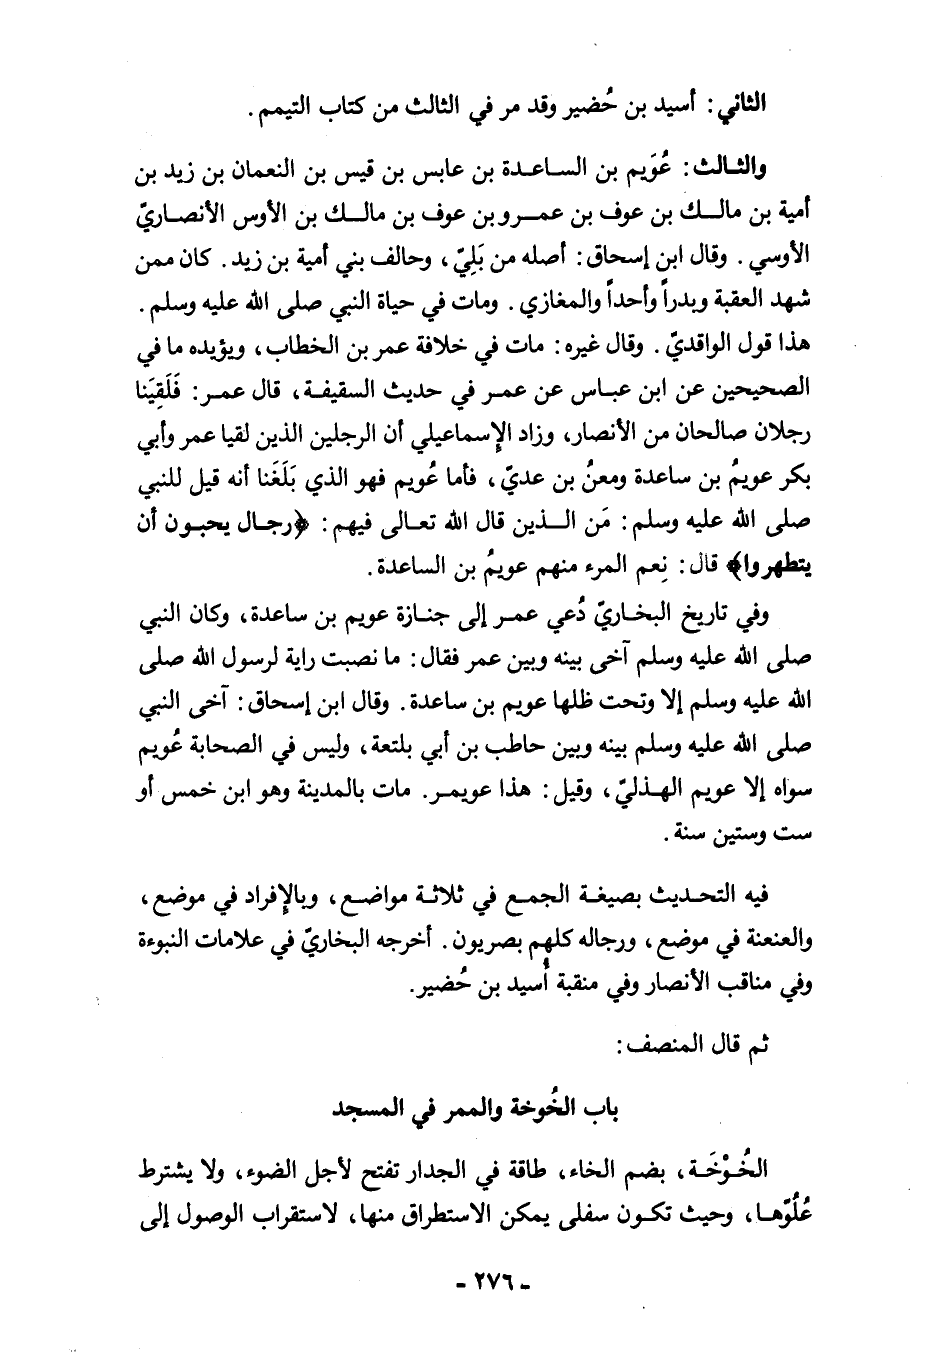 الثاني: أسيد بن حُضير وقد مر في الثالث من كتاب التيمم.
والثالث: عُوَيم بن الساعدة بن عابس بن قيس بن النعمان بن زيد بن
أمية بن مالك بن عوف بن عمرو بن عوف بن مالك بن الأوس الأنصاريّ
الأوسي. وقال ابن إسحاق: أصله من بَلِيّ، وحالف بني أمية بن زيد. كان ممن
شهد العقبة وبدراً وأحداً والمغازي. ومات في حياة النبي صلى الله عليه وسلم.
هذا قول الواقديّ. وقال غيره: مات في خلافة عمر بن الخطاب، ويؤيده ما في
الصحيحين عن ابن عباس عن عمر في حديث السقيفة، قال عمر: فَلَقِيَنا
رجلان صالحان من الأنصار، وزاد الإسماعيلي أن الرجلين الذين لقيا عمر وأبي
بكر عويمُ بن ساعدة ومعنُ بن عديّ، فأما عُويم فهو الذي بَلَغَنا أنه قيل للنبي
صلى الله عليه وسلم: مَن الذين قال الله تعالى فيهم: ﴿رجال يحبون أن
يتطهروا﴾ قال: نِعم المرء منهم عويمُ بن الساعدة.
وفي تاريخ البخاريّ دُعي عمر إلى جنازة عويم بن ساعدة، وكان النبي
صلى الله عليه وسلم آخى بينه وبين عمر فقال: ما نصبت راية لرسول الله صلى
الله عليه وسلم إلا وتحت ظلها عويم بن ساعدة. وقال ابن إسحاق: آخى النبي
صلى الله عليه وسلم بينه وبين حاطب بن أبي بلتعة، وليس في الصحابة عُويم
سواه إلا عويم الهذليّ، وقيل: هذا عويمر. مات بالمدينة وهو ابن خمس أو
ست وستين سنة.
فيه التحديث بصيغة الجمع في ثلاثة مواضع، وبالإفراد في موضع،
والعنعنة في موضع، ورجاله كلهم بصريون. أخرجه البخاريّ في علامات النبوءة
وفي مناقب الأنصار وفي منقبة أُسيد بن حُضير.
ثم قال المنصف:
باب الخُوخة والممر في المسجد
الخُوْخَة، بضم الخاء، طاقة في الجدار تفتح لأجل الضوء، ولا يشترط
عُلُوّها، وحيث تكون سفلى يمكن الاستطراق منها، لاستقراب الوصول إلى
- ٢٧٦ -